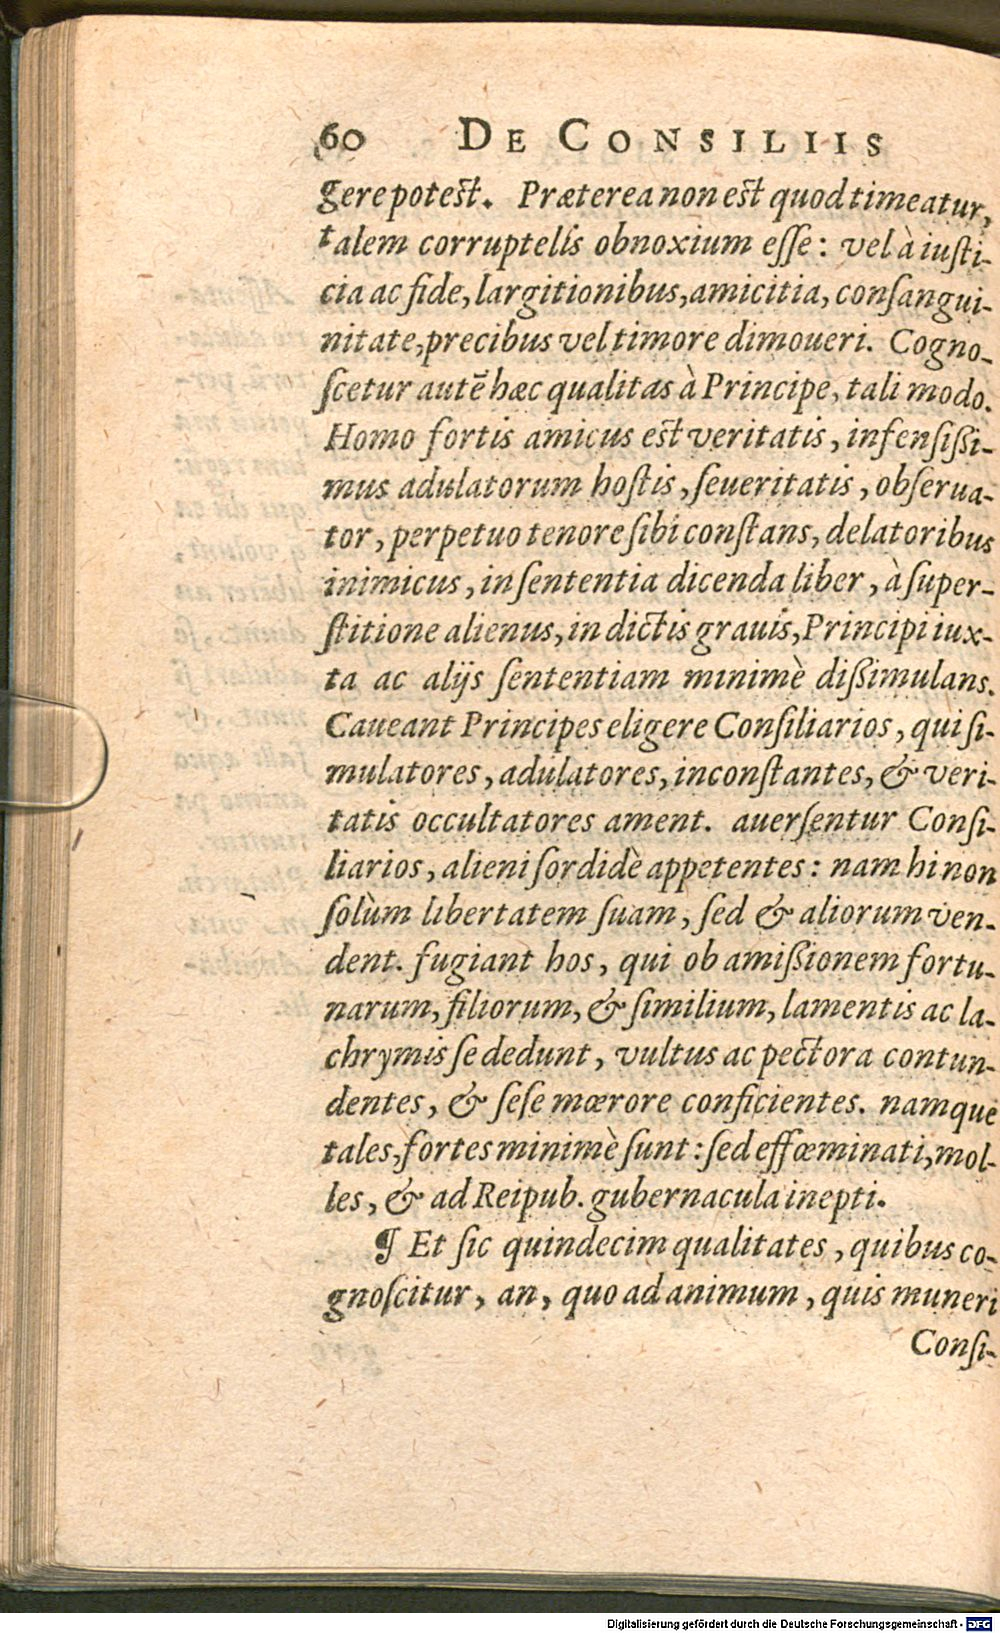 60 DE CONSILIIS
gere potest. Præterea non est quod timeatur,
talem corruptelis obnoxium eſſe: vel à iuſti-
cia ac fide, largitionibus, amicitia, conſangui-
nitate, precibus vel timore dimoueri. Cogno-
ſcetur autē hæc qualitas à Principe, tali modo.
Homo fortis amicus est veritatis, infenſißi-
mus adulatorum hoſtis, ſeueritatis, obſerua-
tor, perpetuo tenore ſibi conſtans, delatoribus
inimicus, in ſententia dicenda liber, à ſuper-
ſtitione alienus, in dictis grauis, Principi iux-
ta ac alijs ſententiam minimè dißimulans.
Caueant Principes eligere Conſiliarios, qui ſi-
mulatores, adulatores, inconſtantes, & veri-
tatis occultatores ament. auerſentur Conſi-
liarios, alieni ſordidè appetentes: nam hi non
ſolùm libertatem ſuam, ſed & aliorum ven-
dent. fugiant hos, qui ob amißionem fortu-
narum, filiorum, & ſimilium, lamentis ac la-
chrymis ſe dedunt, vultus ac pectora contun-
dentes, & ſeſe mœrore conficientes. namque
tales, fortes minimè ſunt: ſed effœminati, mol-
les, & ad Reipub. gubernacula inepti.
¶ Et ſic quindecim qualitates, quibus co-
gnoſcitur, an, quo ad animum, quis muneri
Conſi-
Digitalisierung gefördert durch die Deutsche Forschungsgemeinschaft - DFG